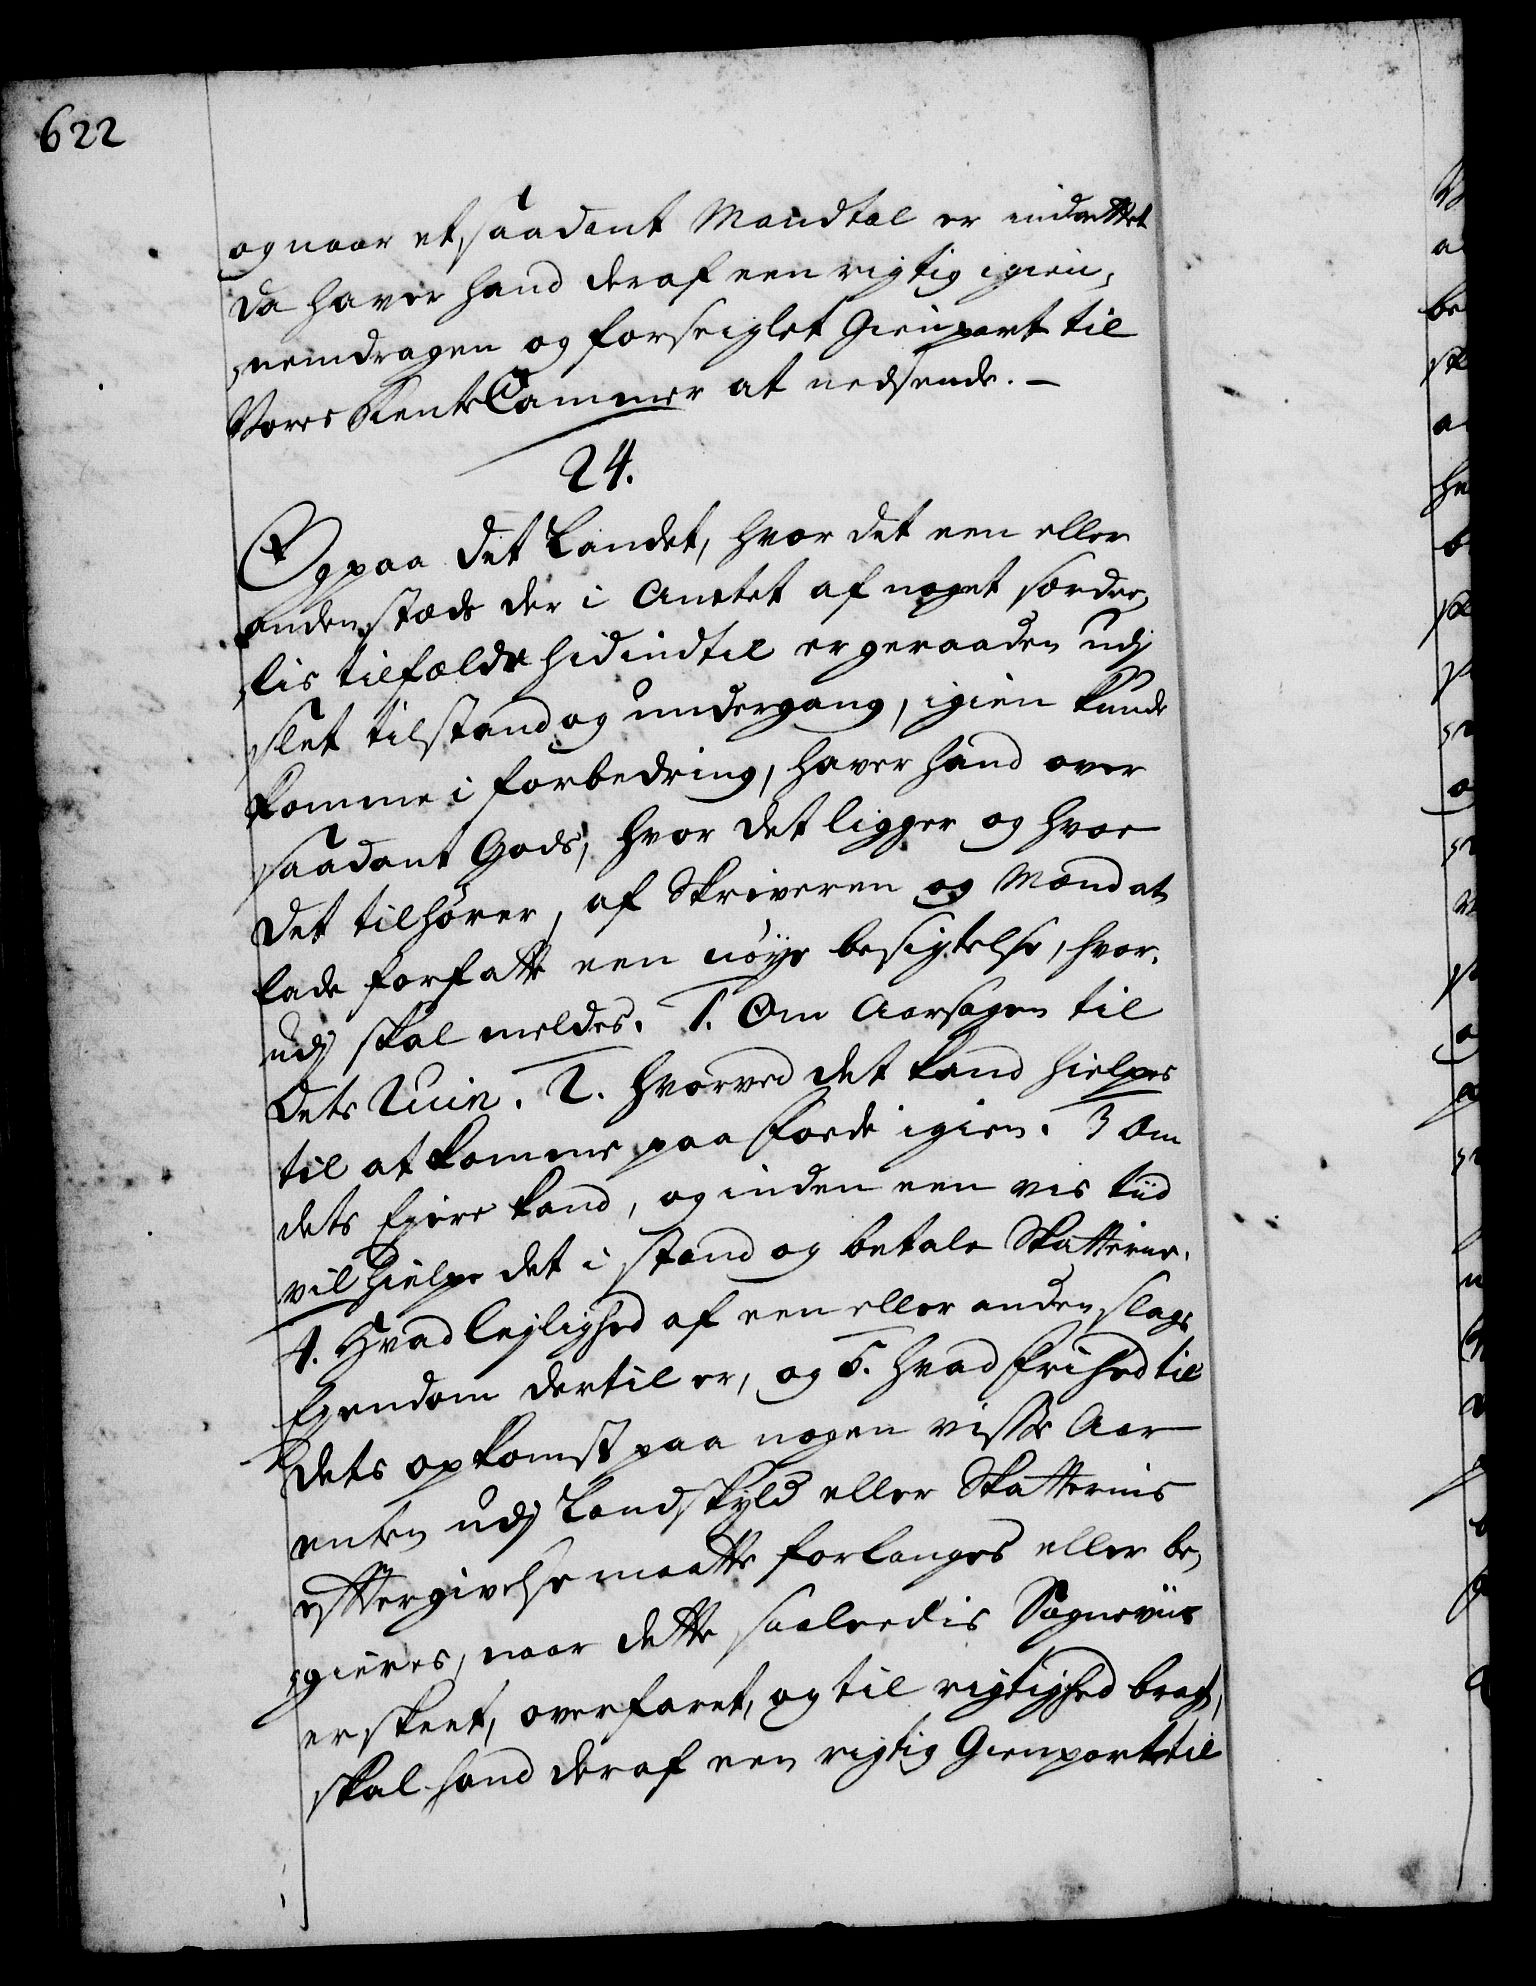 622
og naar et saadant Mandtal er indrettet
da haver hand deraf een rigtig igien,
nemdragen og forseiglet Gienpart til
Vores RenteCammer at nedsende. —
24.
Og paa det Landet, hvor det een eller
anden stæds der i Amtet af noget særde,
lis tilfælde hidindtil er geraaden udj
slet tilstand og undergang, igien kunde
komme i forbedring, haver hand over
saadant Gods, hvor det ligger og hvor
det tilhører, af Skriveren og Mænd at
lade forfatte een nøye besigtelse, hvor,
udj skal meldes. 1. Om Aarsagen til
dets Ruin. 2. hvorved det kand hielpes
til at komme paa fode igien. 3 Om
dets Ejere kand, og inden een vis tiid
vil hielpe det i stand og betale Skatterne.
4. Hvad lejlighed af een eller anden slags
Ejendom dertil er, og 5. hvad frihed til
dets opkomst paa nogen visse Aar
enten udj Landskyld eller Skatternis
eftergivelse maatte forlanges eller be,
gieres, naar dette saaledis Sogneviis
er skeet, overfaret, og til rigtighed bragt,
skal hand deraf een rigtig Gienpart til